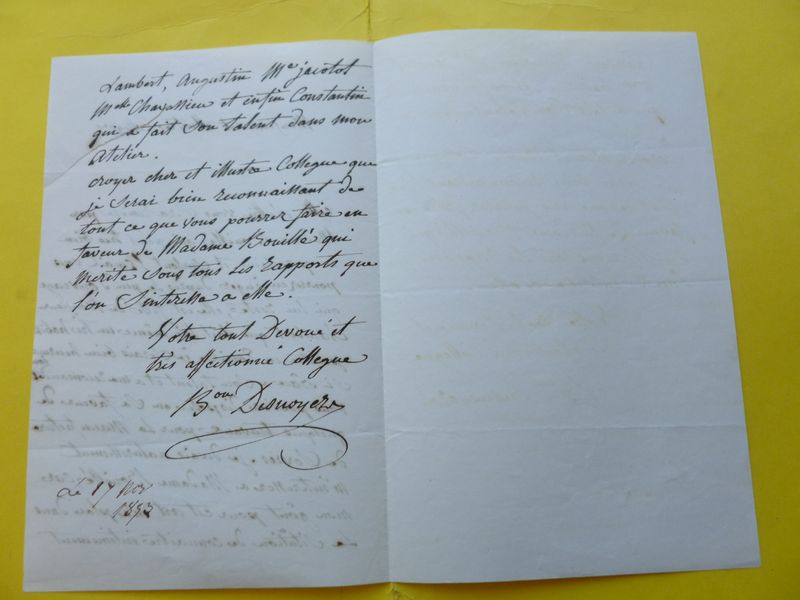 Lambert, Augustin Me jacotot
Melle Chavassieu et enfin Constantin
qui a fait son talent dans mon
Atelier.
croyer cher et illustre Collegue que
je serai bien reconnaissant de
tout ce que vous pourrez faire en
faveur de Madame Bouillé qui
mérite sous tous les rapports que
l'on s'interesse a elle.
Votre tout Devoué et
très affectionné Collegue
Bon Desnoyers
Le 17